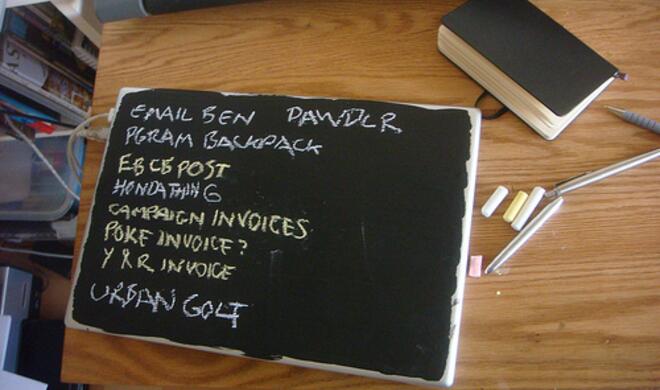 EMAIL BEN PAWDLR
PGRAM BACKPACK
EBCB POST
HONDATHING
CAMPAIGN INVOICES
POKE INVOICE?
Y&R INVOICE
URBAN GOLF